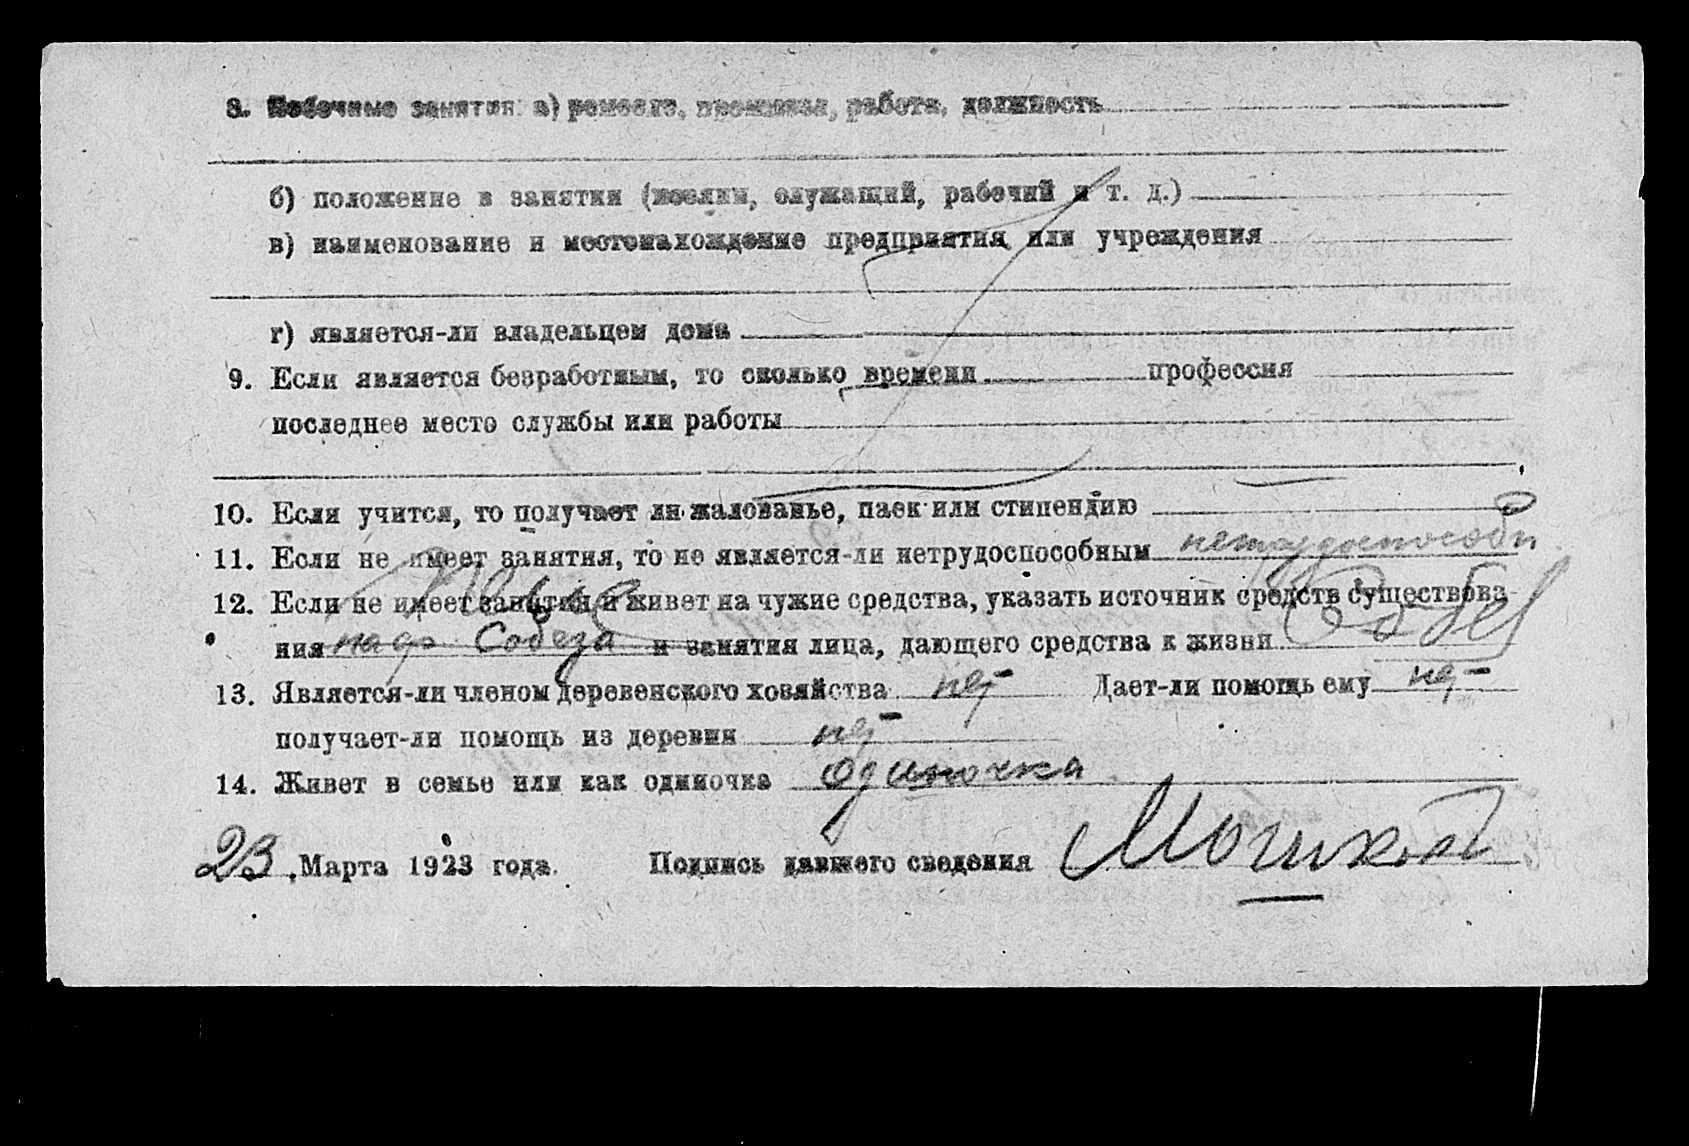 8. Побочные занятия: а) ремесло, промысел, работа, должность
б) положение в занятии (хозяин, служащий, рабочий и т. д.)
в) наименование и местонахождение предприятия или учреждения
г) является-ли владельцем дома
9. Если является безработным, то сколько времени профессия
последнее место службы или работы
10. Если учится, то получает ли жалованье, паек или стипендию
11. Если не имеет занятия, то не является-ли нетрудоспособным нетрудоспособн
12. Если не имеет занятия и живет на чужие средства, указать источник средств существова-
ния Собеза и занятия лица, дающего средства к жизни
13. Является-ли членом деревенского хозяйства нет Дает-ли помощь ему нет
получает-ли помощь из деревни нет
14. Живет в семье или как одиночка одиночка
23 Марта 1923 года. Подпись давшего сведения